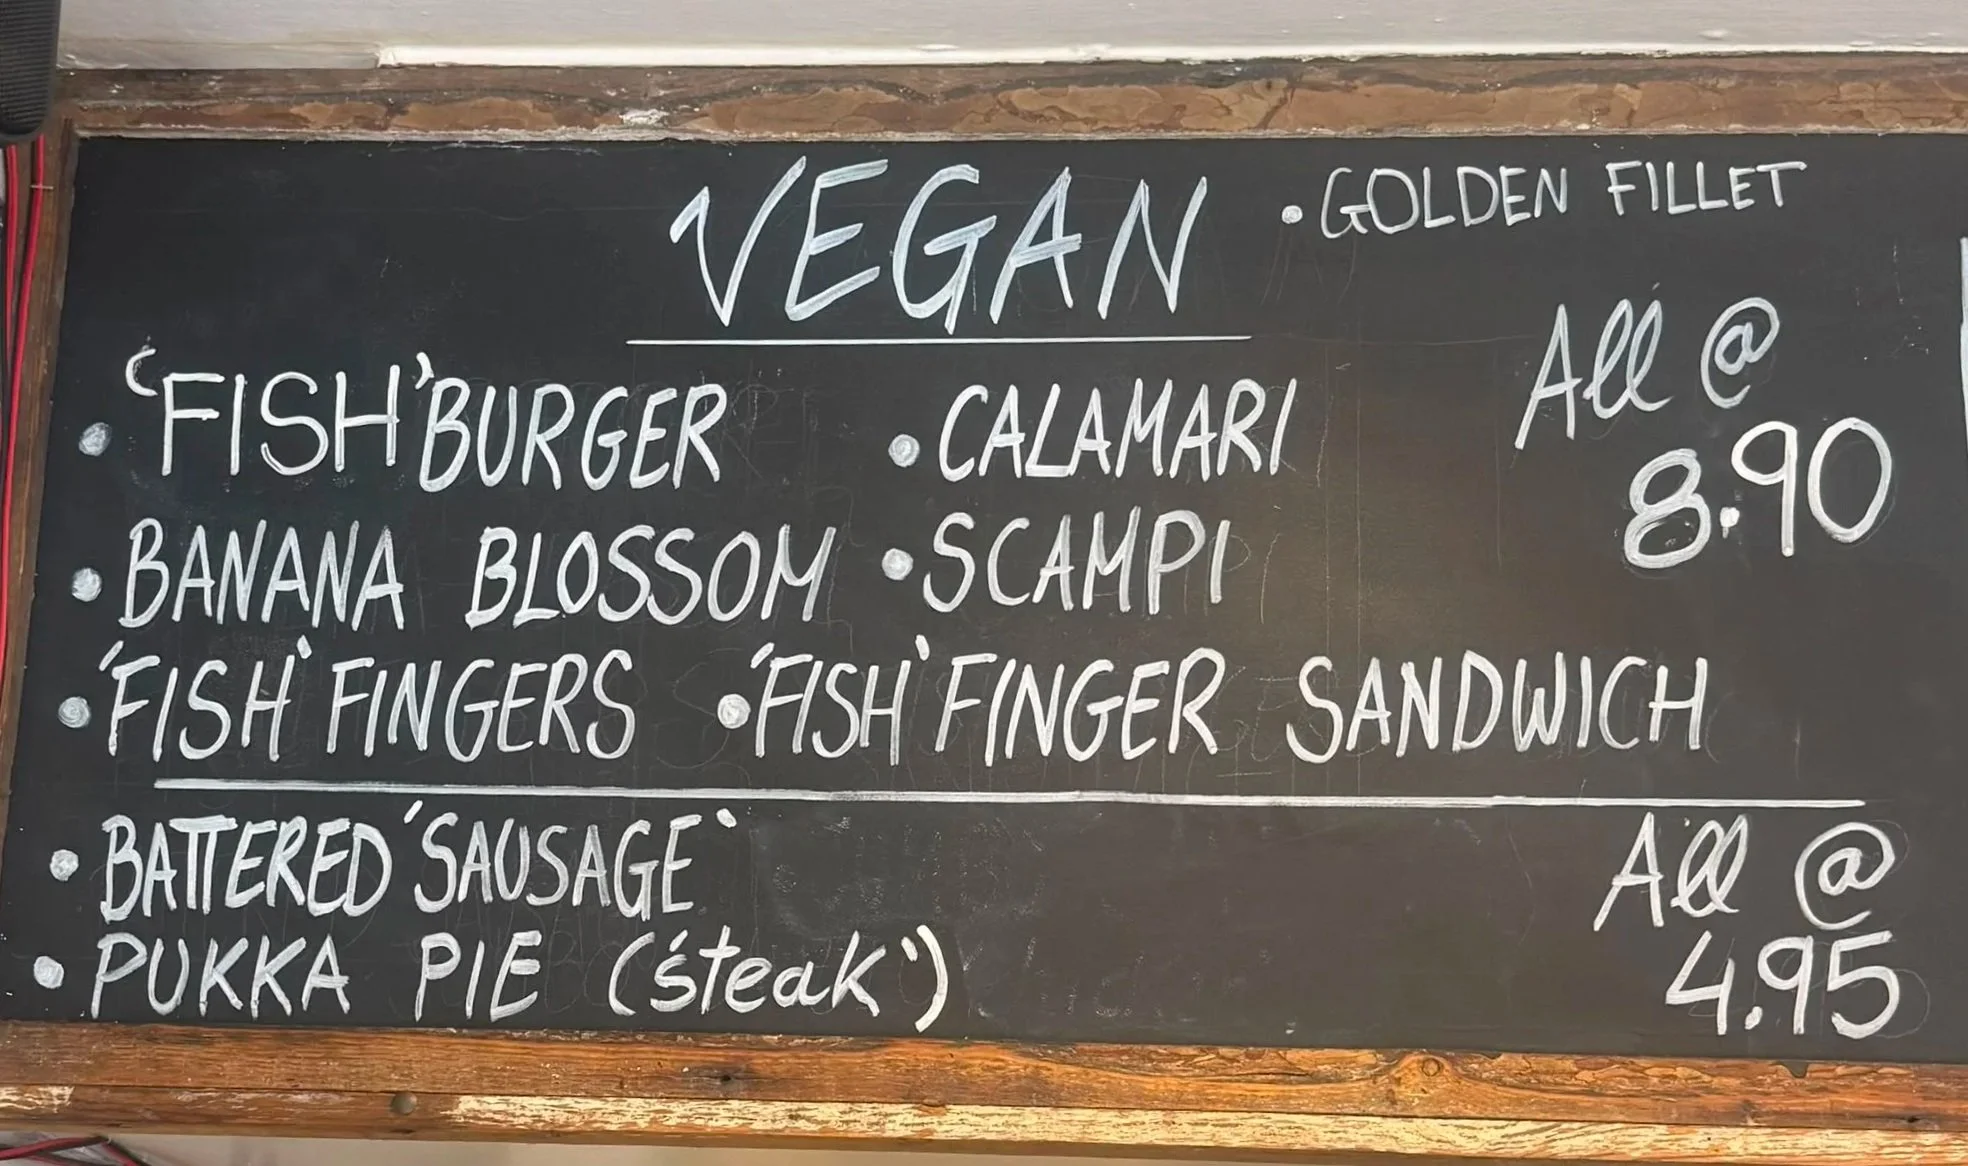 VEGAN • GOLDEN FILLET
All @
8.90
• 'FISH' BURGER • CALAMARI
• BANANA BLOSSOM • SCAMPI
• 'FISH' FINGERS • 'FISH' FINGER SANDWICH
• BATTERED 'SAUSAGE'
All @
4.95
• PUKKA PIE ('steak')